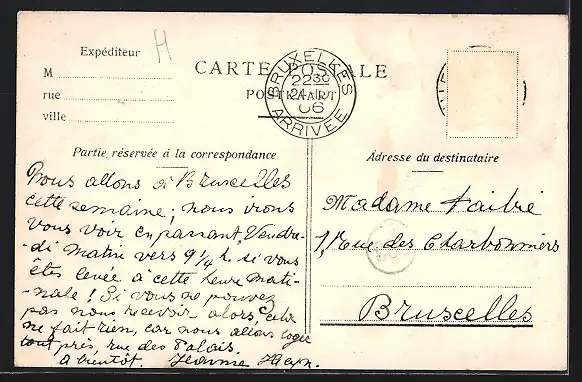 Expéditeur
H
M
rue
ville
CARTE POSTALE
POSTKAART
BRUXELLES
22 30
06
ARRIVÉE
Partie réservée à la correspondance
Adresse du destinataire
Nous allons à Bruxelles
cette semaine; nous irons
vous voir en passant, Vendre-
-di matin vers 9 1/4 h. si vous
êtes levée à cette heure mati-
-nale! Si vous ne pouvez
pas nous recevoir alors cela
ne fait rien, car nous allons loger
tout près, rue des Palais.
a bientôt. Jeanne
Madame
1, Rue des Charbonniers
Bruxelles